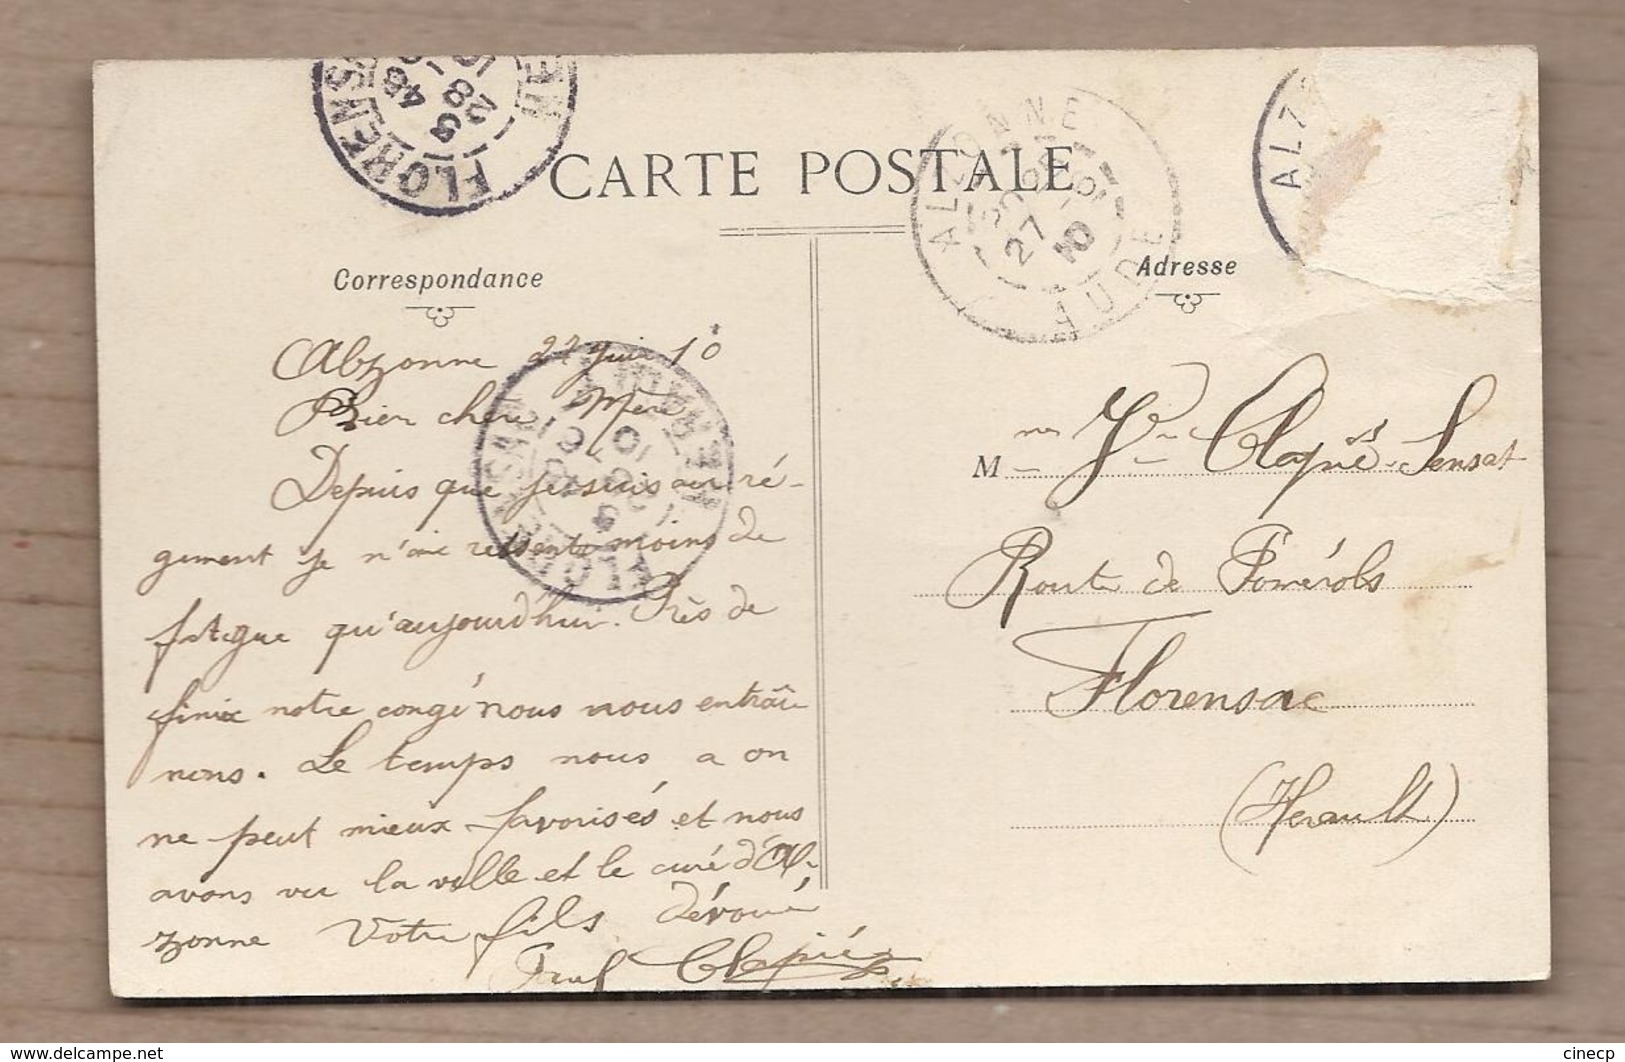 CARTE POSTALE
Correspondance
Alzonne 27 Juin 10
Bien chère Mère
Depuis que je suis au ré-
giment je n'ai ressenti moins de
fatigue qu'aujourd'hui. Près de
finir notre congé nous nous entraî
nons. Le temps nous a on
ne peut mieux favorisés et nous
avons vu la ville et le curé d'Al-
zonne Votre fils dévoué
Paul Clapiés
Adresse
M me Vve Clapiés-Sensat
Route de Pomérols
Florensac
(Herault)
FLORENSAC
28
ALZONNE
27
10
AUDE
FLORENSAC
HERAULT
ALZ
www.delcampe.net
cinecp